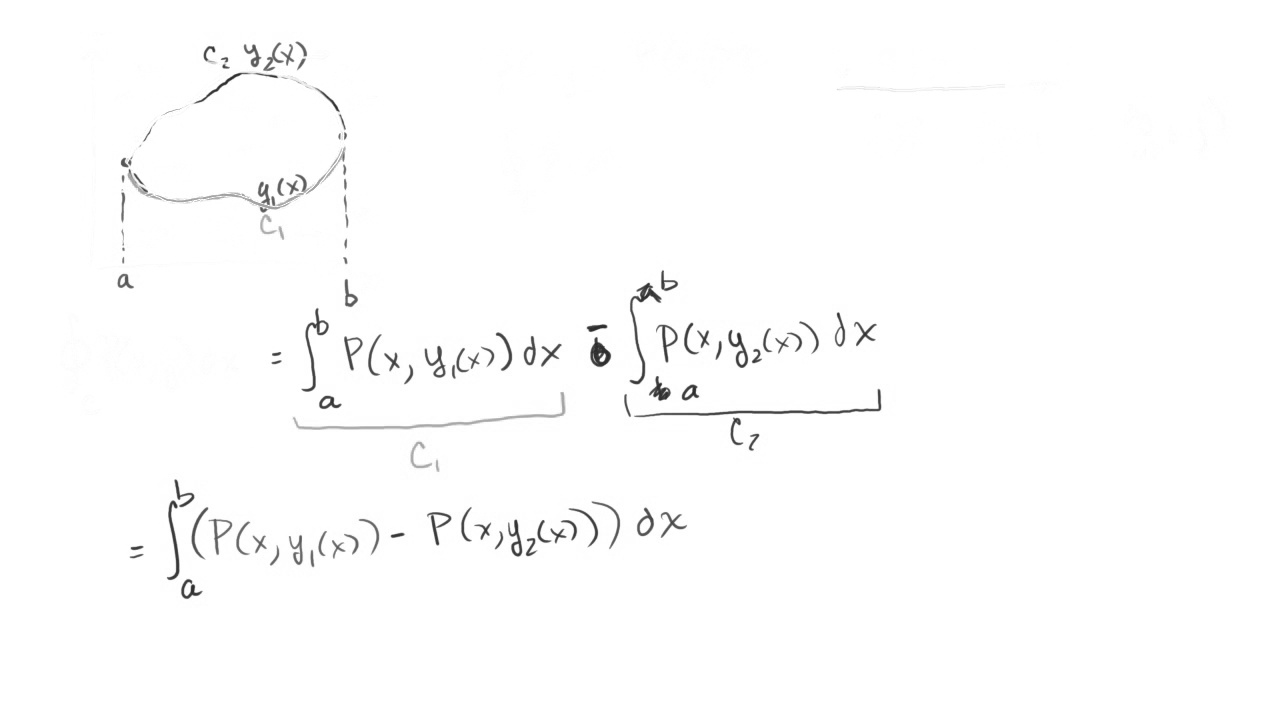 C₂ y₂(x)
y₁(x)
C₁
a
b
= ∫ₐᵇ P(x, y₁(x)) dx - ∫ₐᵇ P(x, y₂(x)) dx
C₁
C₂
= ∫ₐᵇ (P(x, y₁(x)) - P(x, y₂(x))) dx